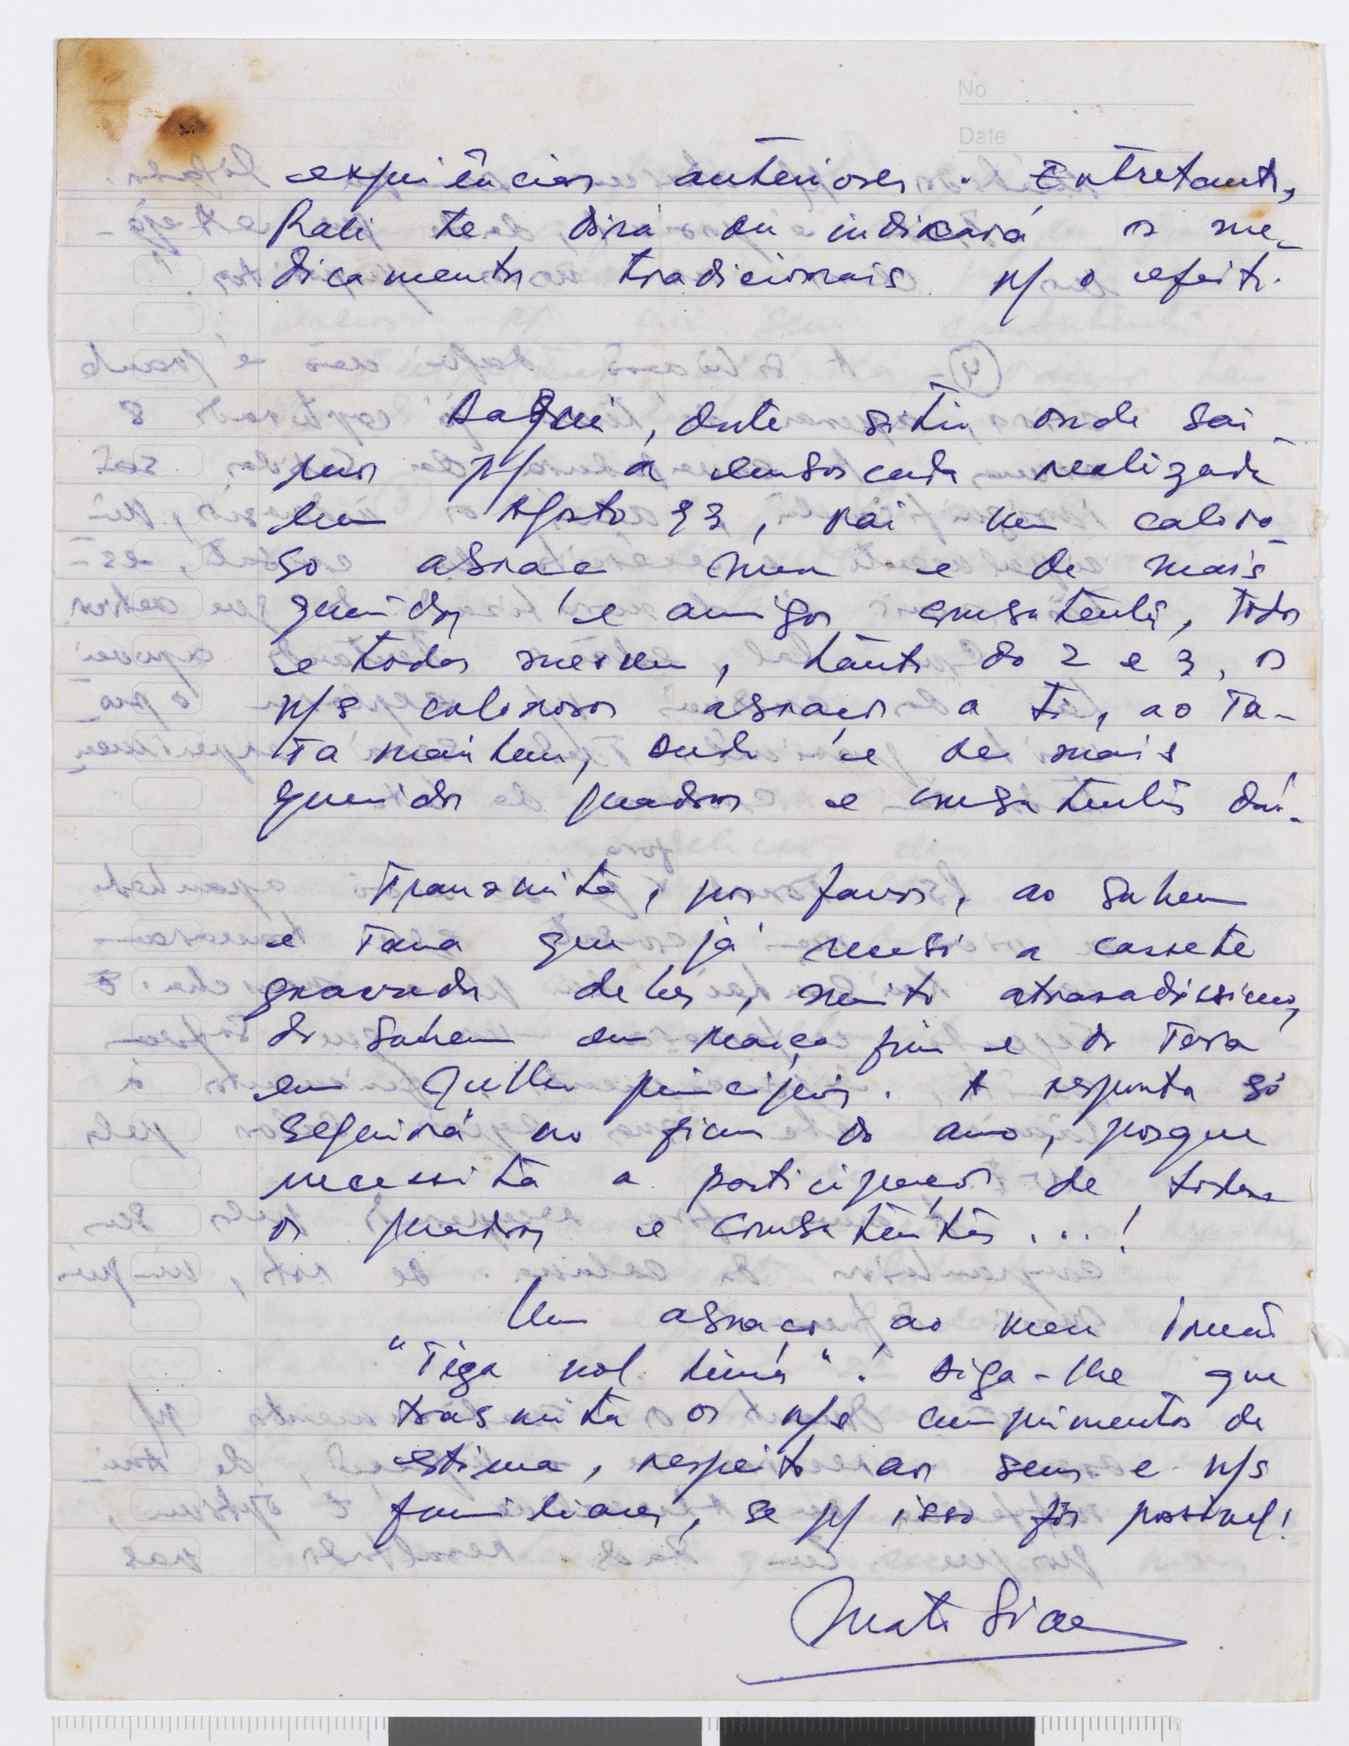 No
Date
experiências anteriores. Entretanto,
Rali te dirá ou indicará os me-
dicamentos tradicionais p/ o efeito.
Daqui, deste sitio onde sai
p/ a emboscada realizada
em Agosto 83, vai um caloro-
so abraço meu e de mais
queridos e amigos combatentes, todos
e todas mesmo, tanto do 2 e 3, os
n/s calorosos abraços a ti, ao Ta-
ta mailau, onde e de mais
queridos quadros e combatentes daí.
Transmita, por favor, ao Sahem
e Tara que já recebi a cassete
gravada deles, muito atrasadissimo,
do Sahem em Março fim e do Tara
em Julho principios. A resposta só
seguirá no fim do ano, porque
necessita a participação de todos
os quadros e combatentes...!
Um abraço ao meu irmão
"Tiga nol lima". Diga-lhe que
trasmita os n/s cumprimentos de
estima, respeito aos seus e n/s
familiares, se p/ isso fôr possivel!